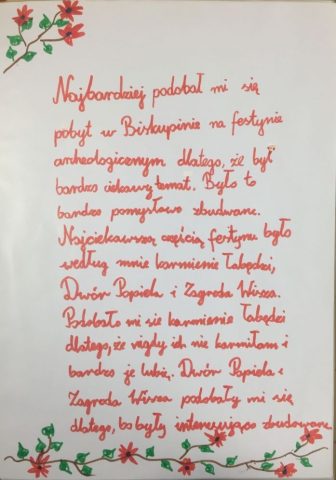 Najbardziej podobał mi się
pobyt w Biskupinie na festynie
archeologicznym dlatego, że był
bardzo ciekawy temat. Było to
bardzo pomysłowo zbudowane.
Najciekawszą częścią festynu było
według mnie karmienie łabędzi,
Dwór Popiela i Zagroda Wisza.
Podobało mi się karmienie łabędzi
dlatego, że nigdy ich nie karmiłam i
bardzo je lubię. Dwór Popiela i
Zagroda Wisza podobały mi się
dlatego, bo były interesująco zbudowane